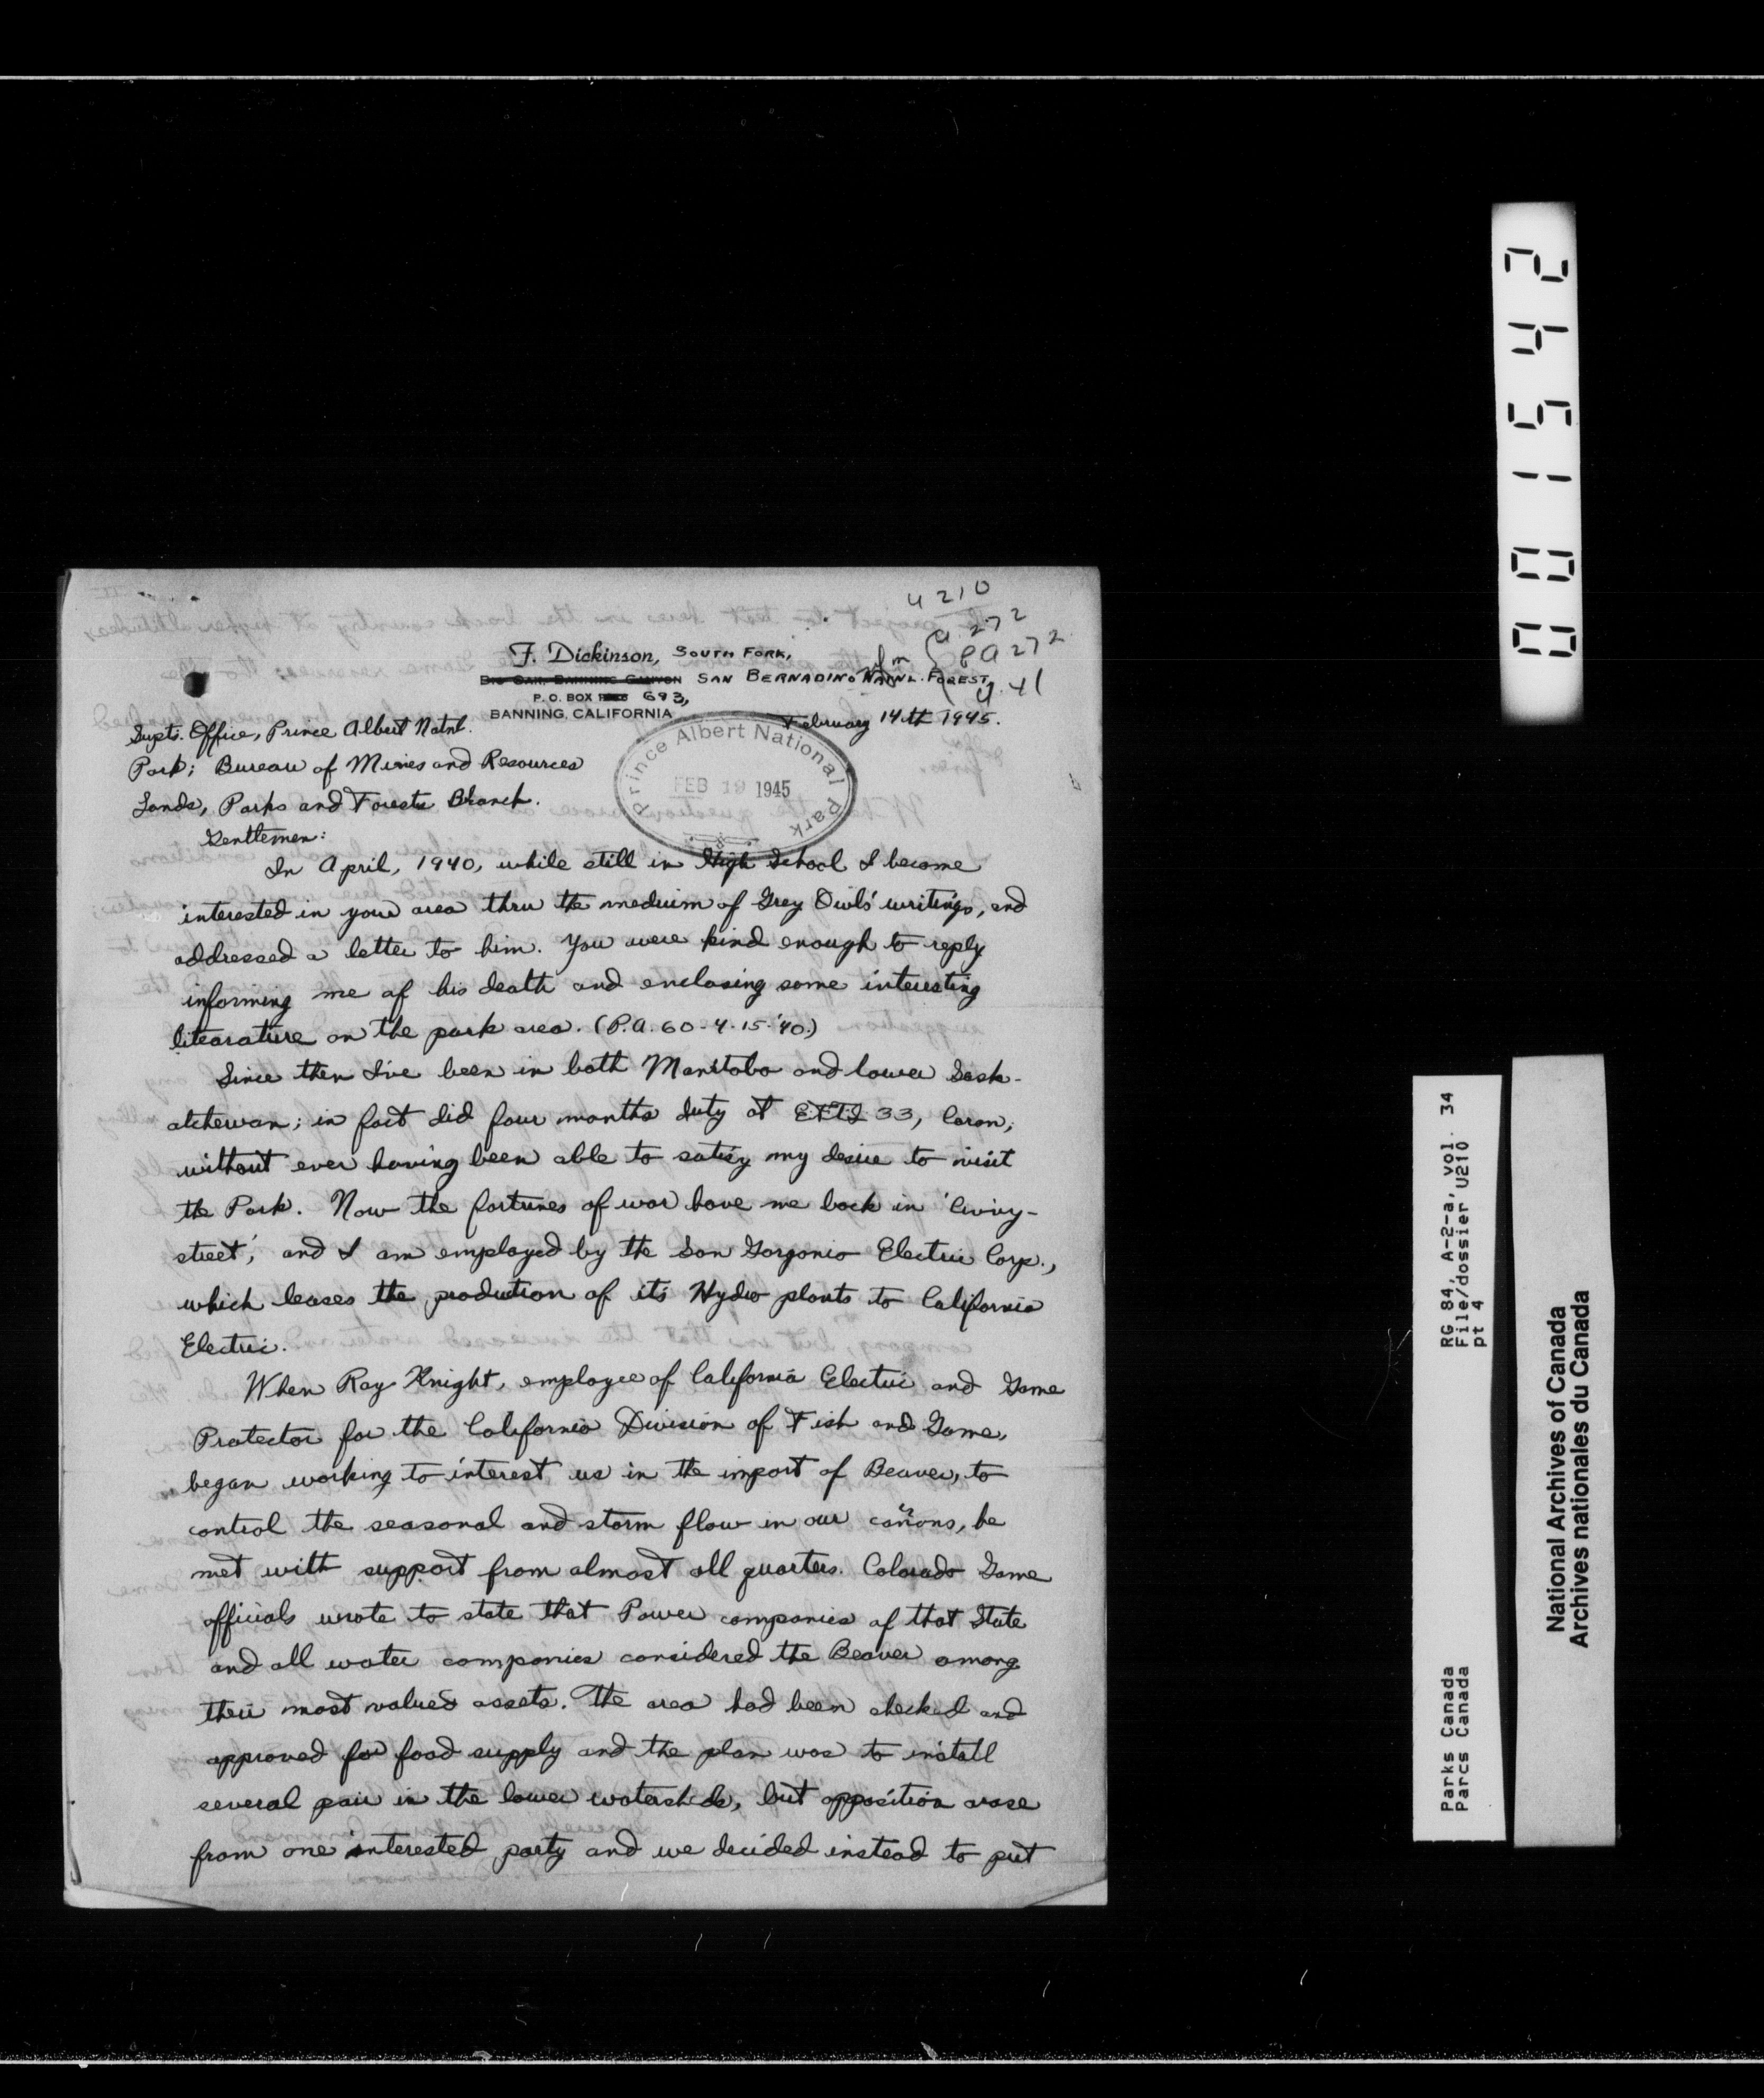 U 210
U 272
PA 272
U. 41
F. Dickinson, SOUTH FORK,
SAN BERNADINO NATNL. FOREST,
P.O. BOX 693,
BANNING, CALIFORNIA
February 14th 1945.
Supts. Office, Prince Albert Natnl.
Park; Bureau of Mines and Resources
Lands, Parks and Forests Branch.
Prince Albert National Park
FEB 19 1945
Gentlemen:
In April, 1940, while still in High School I became
interested in your area thru the meduim of Grey Owls' writings, and
addressed a letter to him. You were kind enough to reply
informing me of his death and enclosing some interesting
litearature on the park area. (P.A. 60-4-15-'40.)
Since then I've been in both Manitoba and lower Sask-
atchewan; in fact did four months duty at E.F.T.S. 33, Caron,
without ever having been able to satisy my desire to visit
the Park. Now the fortunes of war have me back in 'Civvy-
street', and I am employed by the San Gorgonio Electric Corp.,
which leases the production of it's Hydro plants to California
Electric.
When Ray Knight, employee of California Electric and Game
Protector for the California Division of Fish and Game,
began working to interest us in the import of Beaver, to
control the seasonal and storm flow in our cañons, he
met with support from almost all quarters. Colorado Game
officials wrote to state that Power companies of that State
and all water companies considered the Beaver among
their most valued assets. The area had been checked and
approved for food supply and the plan was to install
several pair in the lower watersheds, but opposition arose
from one interested party and we decided instead to put
001542
RG 84, A-2-a, vol. 34
File/dossier U210
pt 4
Parks Canada
Parcs Canada
National Archives of Canada
Archives nationales du Canada